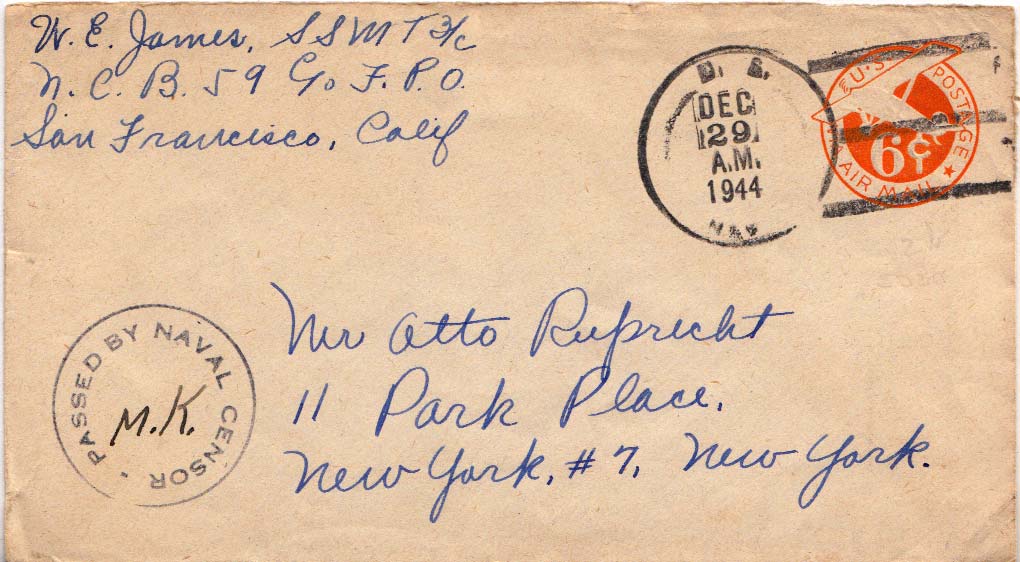 W. E. James, SSMT 3/c
N. C. B. 59 c/o F. P. O.
San Francisco, Calif
U. S.
DEC
29
A.M.
1944
NAVY
U.S. POSTAGE
6¢
AIR MAIL
PASSED BY NAVAL CENSOR
M.K.
Mr Otto Ruprecht
11 Park Place,
New York, # 7, New York.